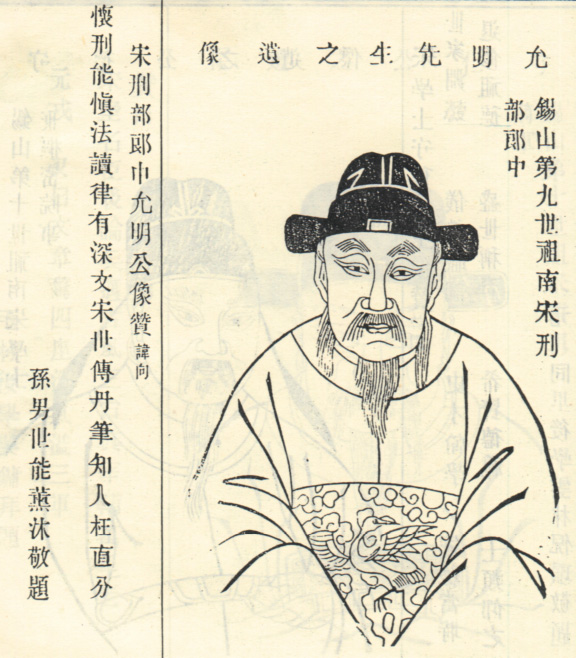 允明先生之遺像
錫山第九世祖南宋刑
部郎中
宋刑部郎中允明公像贊諱向
懷刑能愼法讀律有深文宋世傳丹筆知人枉直分
孫男世能薰沐敬題